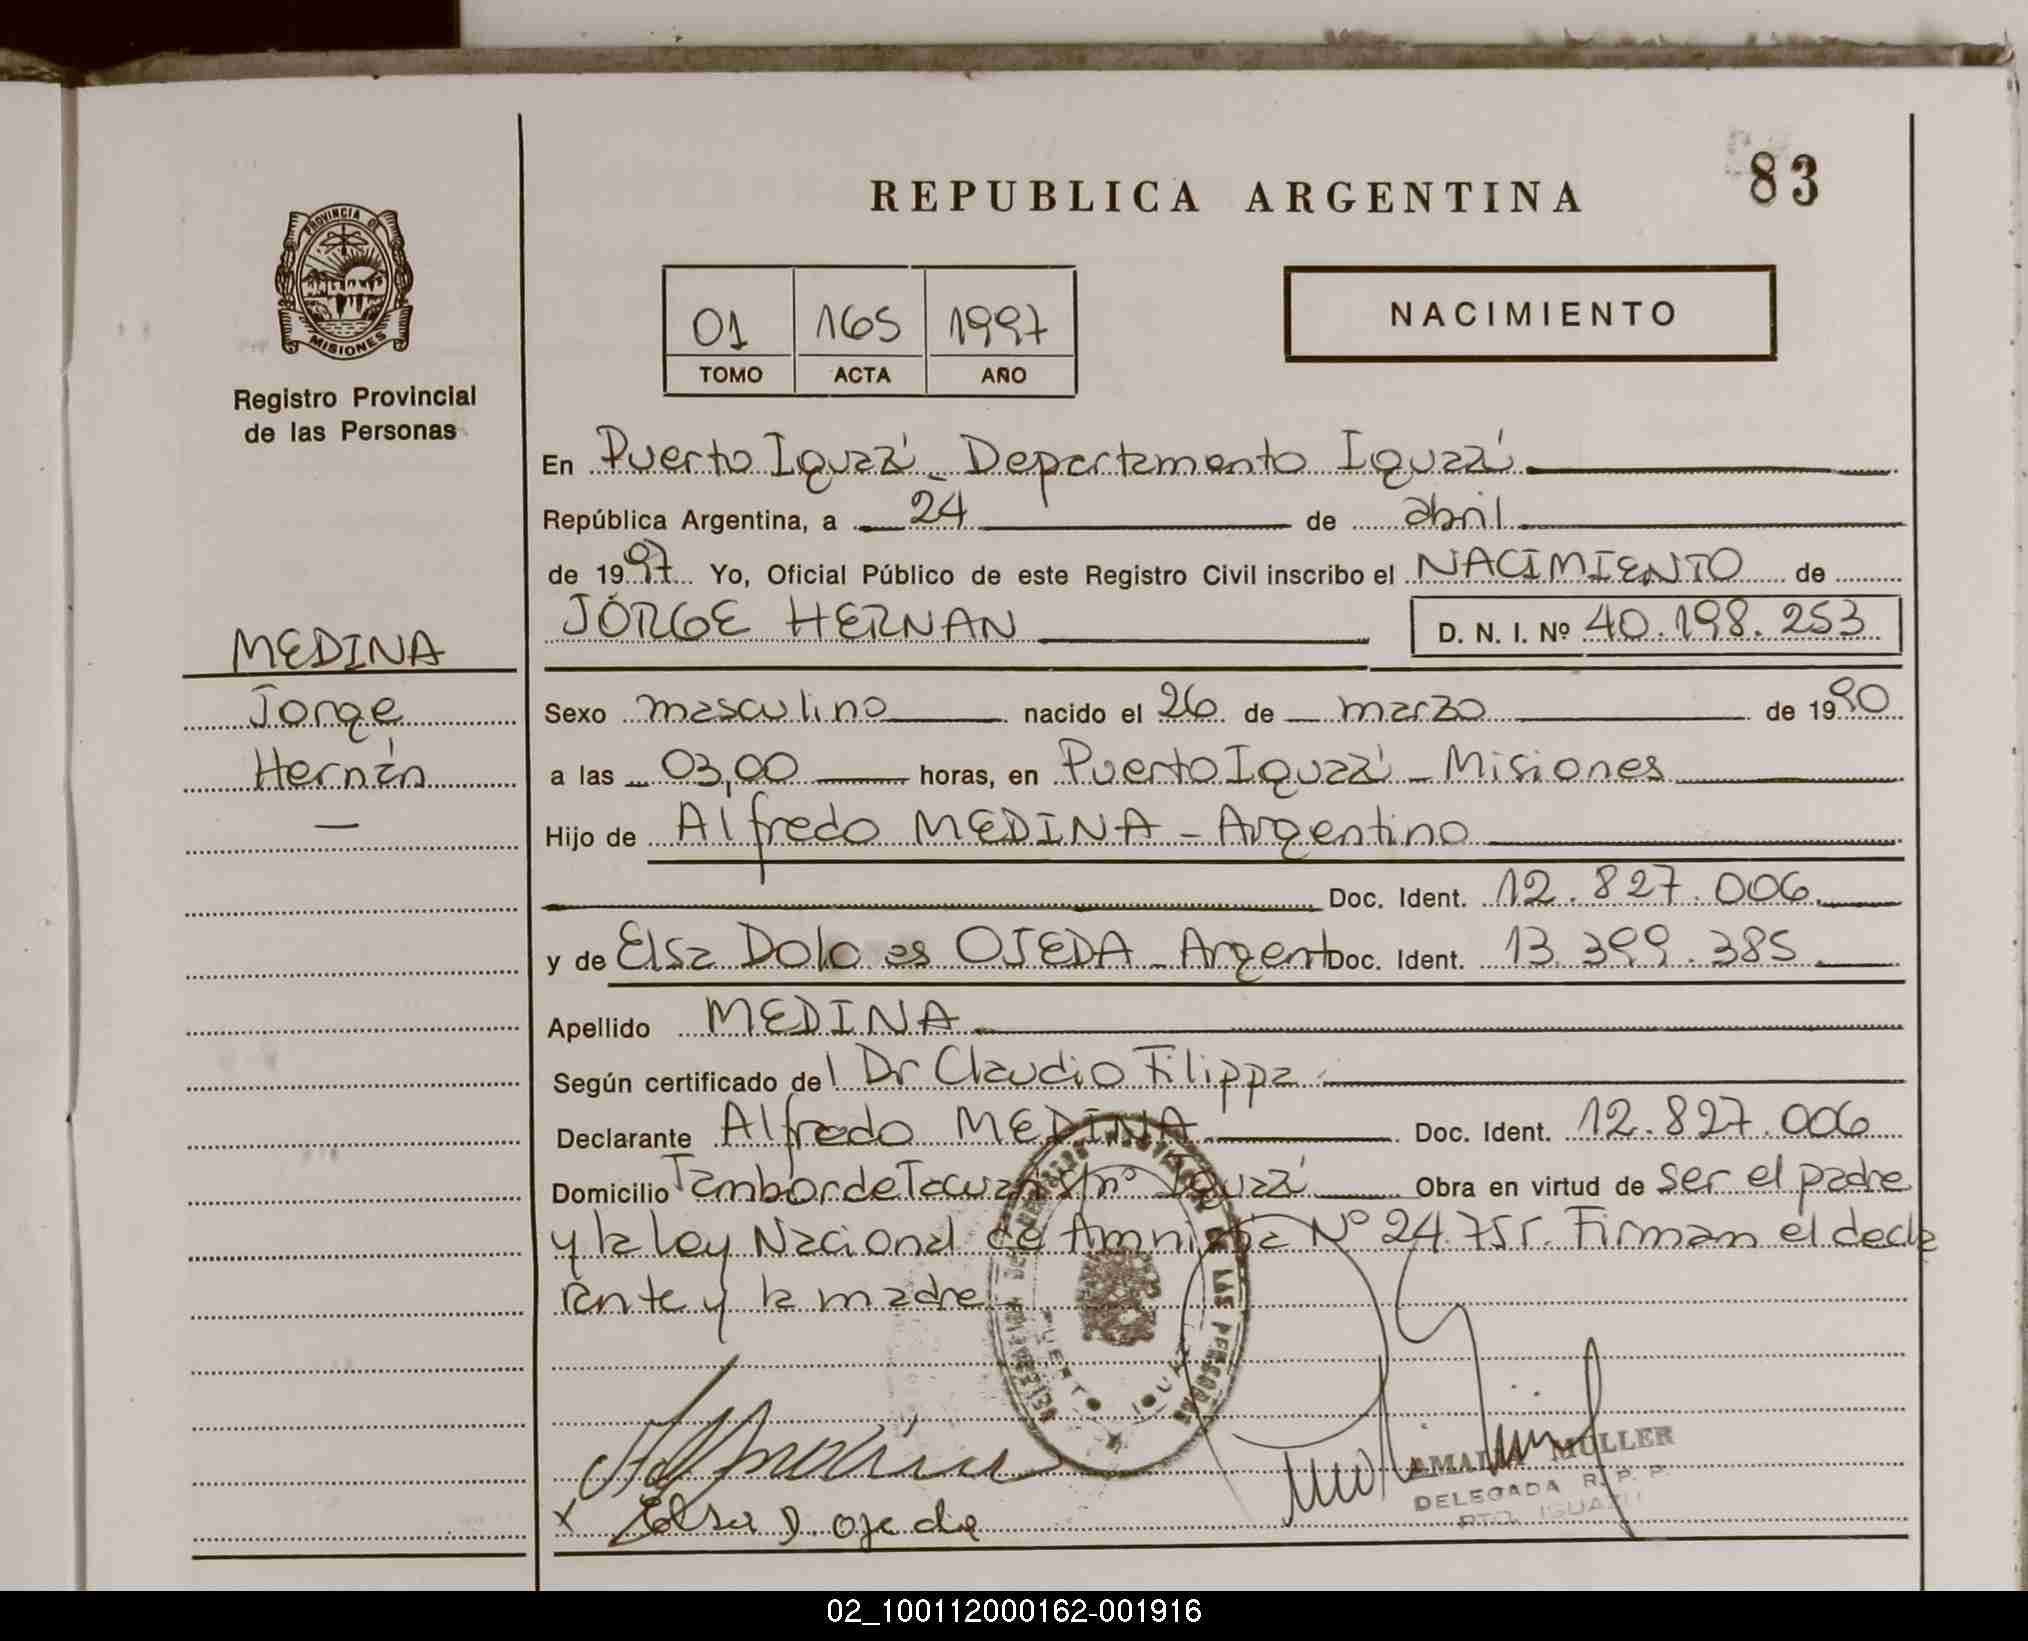 REPUBLICA ARGENTINA
83
PROVINCIA DE
MISIONES
Registro Provincial
de las Personas
01 165 1997
TOMO ACTA AÑO
NACIMIENTO
En Puerto Iguazú - Departamento Iguazú
República Argentina, a 24 de abril
de 1997 Yo, Oficial Público de este Registro Civil inscribo el NACIMIENTO de
JORGE HERNAN D. N. I. Nº 40.198.253
MEDINA
Jorge
Hernán
Sexo masculino nacido el 26 de marzo de 1990
a las 03,00 horas, en Puerto Iguazú - Misiones
Hijo de Alfredo MEDINA - Argentino
Doc. Ident. 12.827.006
y de Elsa Dolo es OJEDA - Argent Doc. Ident. 13.399.385
Apellido MEDINA
Según certificado del Dr Claudio Filippa
Declarante Alfredo MEDINA Doc. Ident. 12.827.006
Domicilio Tambor de Tacuarí s/nº Iguazú Obra en virtud de ser el padre
y la ley Nacional de Amnistia Nº 24.755. Firman el decla
rante y la madre
PUERTO IGUAZU
DE LAS PERSONAS
Elsa D. ojeda
AMALIA MULLER
DELEGADA R. P. P.
PTO. IGUAZU
02_100112000162-001916